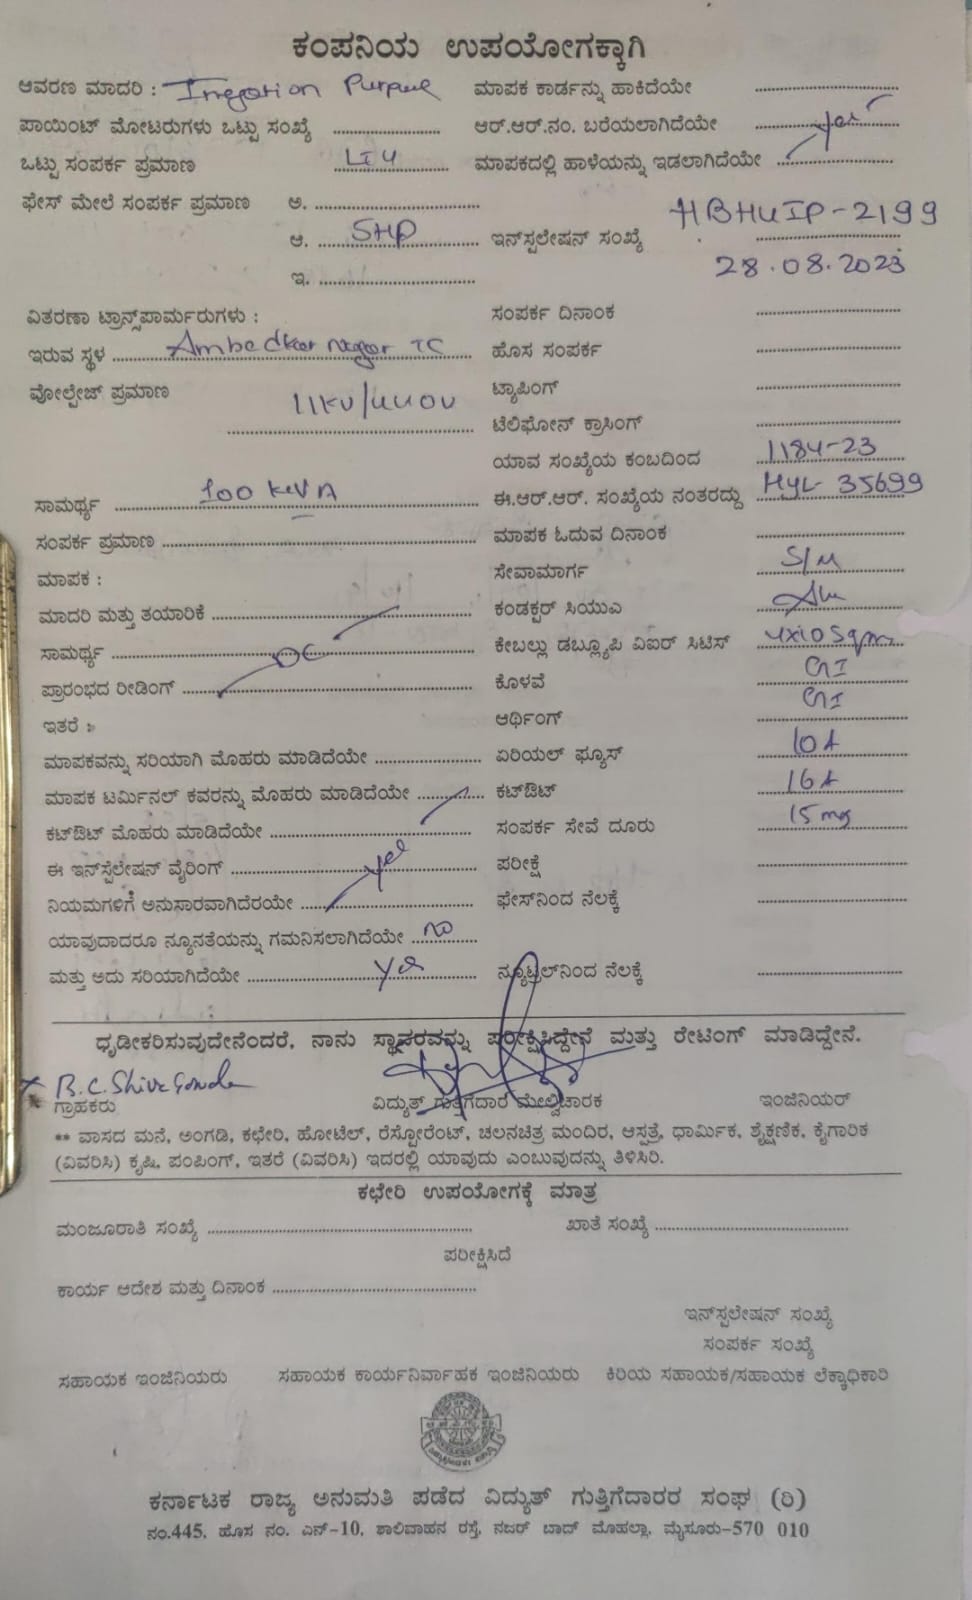 ಕಂಪನಿಯ ಉಪಯೋಗಕ್ಕಾಗಿ
ಆವರಣ ಮಾದರಿ : Irregation Purpuse ಮಾಪಕ ಕಾರ್ಡನ್ನು ಹಾಕಿದೆಯೇ
ಪಾಯಿಂಟ್ ಮೋಟರುಗಳು ಒಟ್ಟು ಸಂಖ್ಯೆ ಆರ್.ಆರ್.ನಂ. ಬರೆಯಲಾಗಿದೆಯೇ yes
ಒಟ್ಟು ಸಂಪರ್ಕ ಪ್ರಮಾಣ LI4 ಮಾಪಕದಲ್ಲಿ ಹಾಳೆಯನ್ನು ಇಡಲಾಗಿದೆಯೇ
ಫೇಸ್ ಮೇಲೆ ಸಂಪರ್ಕ ಪ್ರಮಾಣ ಅ.
ಆ. 5HP ಇನ್‌ಸ್ಟಲೇಷನ್ ಸಂಖ್ಯೆ HBHUIP-2199
28.08.2023
ಇ.
ವಿತರಣಾ ಟ್ರಾನ್ಸ್‌ಪಾರ್ಮರುಗಳು : ಸಂಪರ್ಕ ದಿನಾಂಕ
ಇರುವ ಸ್ಥಳ Ambedkar nagar TC ಹೊಸ ಸಂಪರ್ಕ
ವೋಲ್ಟೇಜ್ ಪ್ರಮಾಣ 11KV/440V ಟ್ಯಾಪಿಂಗ್
ಟೆಲಿಫೋನ್ ಕ್ರಾಸಿಂಗ್
ಯಾವ ಸಂಖ್ಯೆಯ ಕಂಬದಿಂದ 1184-23
ಸಾಮರ್ಥ್ಯ 100 KVA ಈ.ಆರ್.ಆರ್. ಸಂಖ್ಯೆಯ ನಂತರದ್ದು HYL 35699
ಸಂಪರ್ಕ ಪ್ರಮಾಣ ಮಾಪಕ ಓದುವ ದಿನಾಂಕ
ಮಾಪಕ : ಸೇವಾಮಾರ್ಗ S/M
ಮಾದರಿ ಮತ್ತು ತಯಾರಿಕೆ ಕಂಡಕ್ಟರ್ ಸಿಯುಎ Alu
ಸಾಮರ್ಥ್ಯ DC ಕೇಬಲ್ಲು ಡಬ್ಲ್ಯೂಪಿ ವಿಐರ್ ಸಿಟಿಸ್ 4x10 Sqmm
ಪ್ರಾರಂಭದ ರೀಡಿಂಗ್ ಕೊಳವೆ GI
ಇತರೆ : ಆರ್ಥಿಂಗ್ GI
ಮಾಪಕವನ್ನು ಸರಿಯಾಗಿ ಮೊಹರು ಮಾಡಿದೆಯೇ ಏರಿಯಲ್ ಫ್ಯೂಸ್ 10A
ಮಾಪಕ ಟರ್ಮಿನಲ್ ಕವರನ್ನು ಮೊಹರು ಮಾಡಿದೆಯೇ ಕಟ್‌ಔಟ್ 16A
ಕಟ್‌ಔಟ್ ಮೊಹರು ಮಾಡಿದೆಯೇ ಸಂಪರ್ಕ ಸೇವೆ ದೂರು 15 mg
ಈ ಇನ್‌ಸ್ಟಲೇಷನ್ ವೈರಿಂಗ್ yes ಪರೀಕ್ಷೆ
ನಿಯಮಗಳಿಗೆ ಅನುಸಾರವಾಗಿದೆರಯೇ ಫೇಸ್‌ನಿಂದ ನೆಲಕ್ಕೆ
ಯಾವುದಾದರೂ ನ್ಯೂನತೆಯನ್ನು ಗಮನಿಸಲಾಗಿದೆಯೇ no
ಮತ್ತು ಅದು ಸರಿಯಾಗಿದೆಯೇ yes ನ್ಯೂಟ್ರಲ್‌ನಿಂದ ನೆಲಕ್ಕೆ
ಧೃಡೀಕರಿಸುವುದೇನೆಂದರೆ, ನಾನು ಸ್ಥಾವರವನ್ನು ಪರೀಕ್ಷಿಸಿದ್ದೇನೆ ಮತ್ತು ರೇಟಿಂಗ್ ಮಾಡಿದ್ದೇನೆ.
x B.C. Shive Gowda
ಗ್ರಾಹಕರು ವಿದ್ಯುತ್ ಗುತ್ತಿಗೆದಾರ ಮೇಲ್ವಿಚಾರಕ ಇಂಜಿನಿಯರ್
** ವಾಸದ ಮನೆ, ಅಂಗಡಿ, ಕಛೇರಿ, ಹೋಟೆಲ್, ರೆಸ್ಟೋರೆಂಟ್, ಚಲನಚಿತ್ರ ಮಂದಿರ, ಆಸ್ಪತ್ರೆ, ಧಾರ್ಮಿಕ, ಶೈಕ್ಷಣಿಕ, ಕೈಗಾರಿಕ
(ವಿವರಿಸಿ) ಕೃಷಿ, ಪಂಪಿಂಗ್, ಇತರೆ (ವಿವರಿಸಿ) ಇದರಲ್ಲಿ ಯಾವುದು ಎಂಬುವುದನ್ನು ತಿಳಿಸಿರಿ.
ಕಛೇರಿ ಉಪಯೋಗಕ್ಕೆ ಮಾತ್ರ
ಮಂಜೂರಾತಿ ಸಂಖ್ಯೆ ಖಾತೆ ಸಂಖ್ಯೆ
ಪರೀಕ್ಷಿಸಿದೆ
ಕಾರ್ಯ ಆದೇಶ ಮತ್ತು ದಿನಾಂಕ
ಇನ್‌ಸ್ಟಲೇಷನ್ ಸಂಖ್ಯೆ
ಸಂಪರ್ಕ ಸಂಖ್ಯೆ
ಸಹಾಯಕ ಇಂಜಿನಿಯರು ಸಹಾಯಕ ಕಾರ್ಯನಿರ್ವಾಹಕ ಇಂಜಿನಿಯರು ಕಿರಿಯ ಸಹಾಯಕ/ಸಹಾಯಕ ಲೆಕ್ಕಾಧಿಕಾರಿ
ಕರ್ನಾಟಕ ರಾಜ್ಯ ಅನುಮತಿ ಪಡೆದ ವಿದ್ಯುತ್ ಗುತ್ತಿಗೆದಾರರ ಸಂಘ (ರಿ)
ನಂ.445, ಹೊಸ ನಂ. ಎನ್-10, ಶಾಲಿವಾಹನ ರಸ್ತೆ, ನಜರ್ ಬಾದ್ ಮೊಹಲ್ಲಾ, ಮೈಸೂರು-570 010